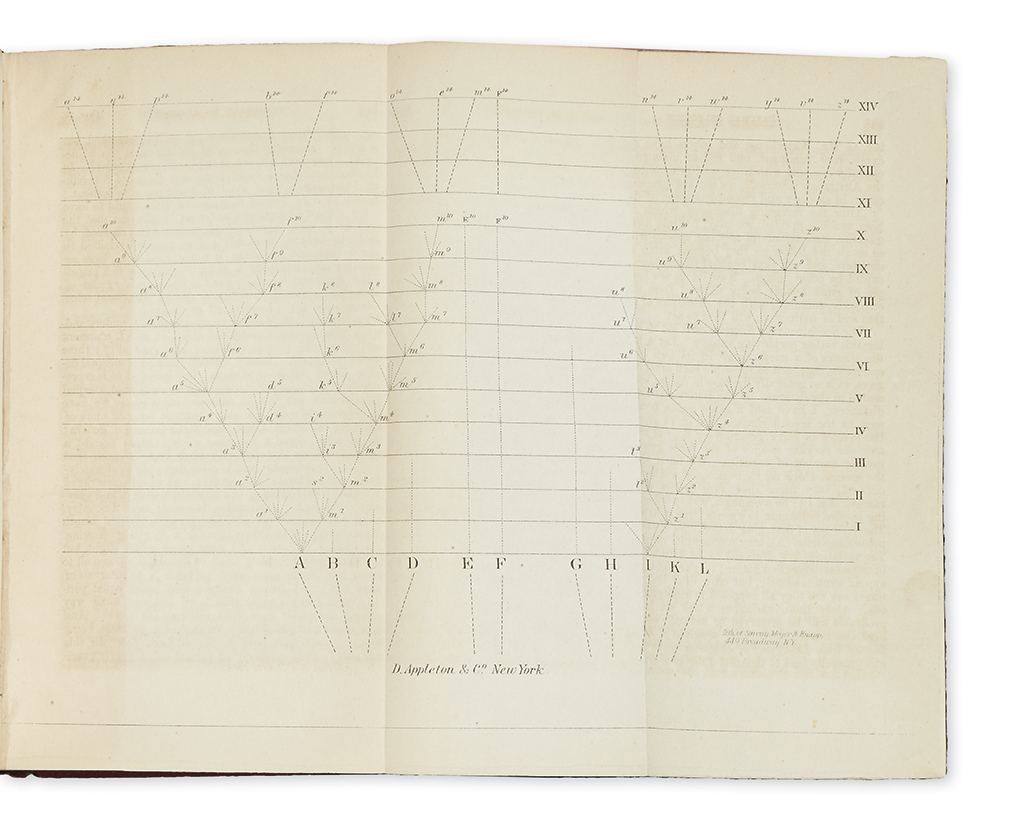 a¹⁴ q¹⁴ p¹⁴ b¹⁴ f¹⁴ o¹⁴ e¹⁴ m¹⁴ F¹⁴ n¹⁴ r¹⁴ w¹⁴ y¹⁴ v¹⁴ z¹⁴ XIV
XIII
XII
XI
a¹⁰ f¹⁰ m¹⁰ E¹⁰ F¹⁰ w¹⁰ z¹⁰ X
a⁹ f⁹ m⁹ w⁹ z⁹ IX
a⁸ f⁸ k⁸ l⁸ m⁸ u⁸ w⁸ z⁸ VIII
a⁷ f⁷ k⁷ l⁷ m⁷ u⁷ w⁷ z⁷ VII
a⁶ f⁶ k⁶ m⁶ u⁶ z⁶ VI
a⁵ d⁵ k⁵ m⁵ u⁵ z⁵ V
a⁴ d⁴ i⁴ m⁴ z⁴ IV
a³ i³ m³ t³ z³ III
a² s² m² t² z² II
a¹ m¹ z¹ I
A B C D E F G H I K L
D. Appleton & Co. New York
Lith. of Sarony, Major & Knapp,
449 Broadway, N.Y.